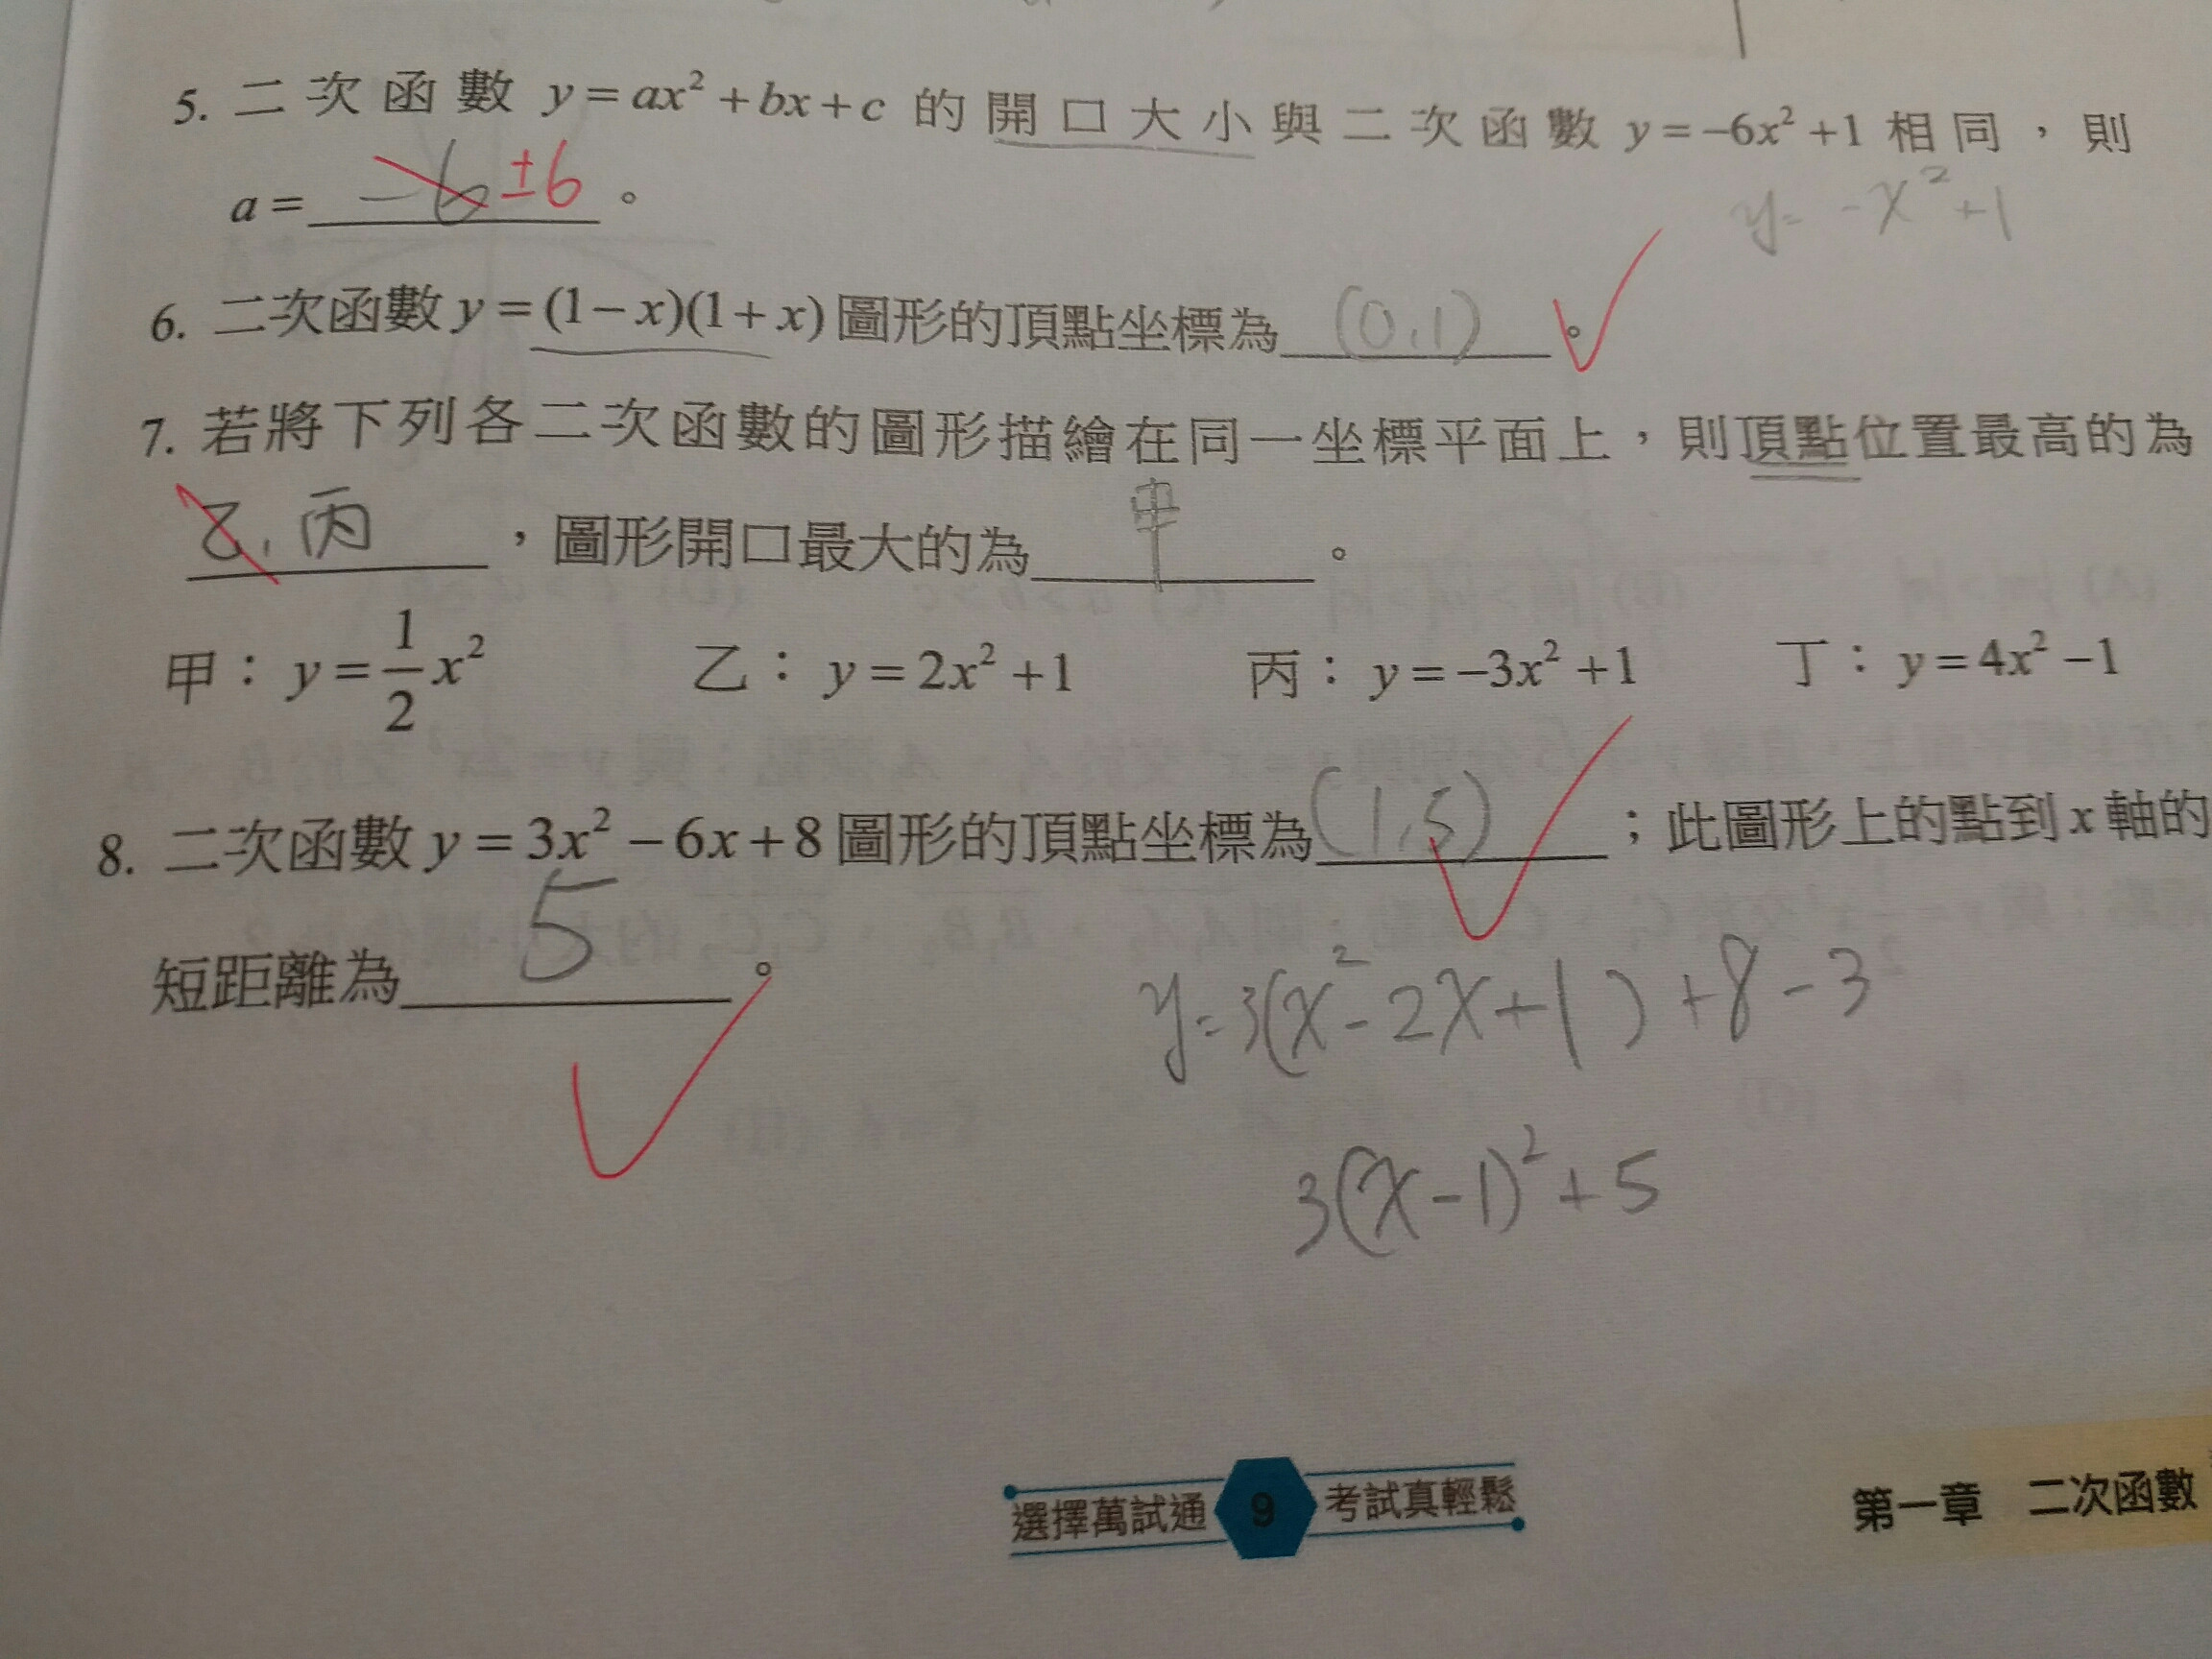 5. 二次函數 y=ax²+bx+c 的開口大小與二次函數 y=-6x²+1 相同，則
a= -6 ±6 。
y= -x²+1
6. 二次函數 y=(1-x)(1+x) 圖形的頂點坐標為 (0,1) 。
7. 若將下列各二次函數的圖形描繪在同一坐標平面上，則頂點位置最高的為
乙, 丙 ，圖形開口最大的為 甲 。
甲：y=1/2x² 乙：y=2x²+1 丙：y=-3x²+1 丁：y=4x²-1
8. 二次函數 y=3x²-6x+8 圖形的頂點坐標為 (1,5) ；此圖形上的點到 x 軸的
短距離為 5 。
y=3(x²-2x+1)+8-3
3(x-1)²+5
選擇萬試通 9 考試真輕鬆
第一章 二次函數